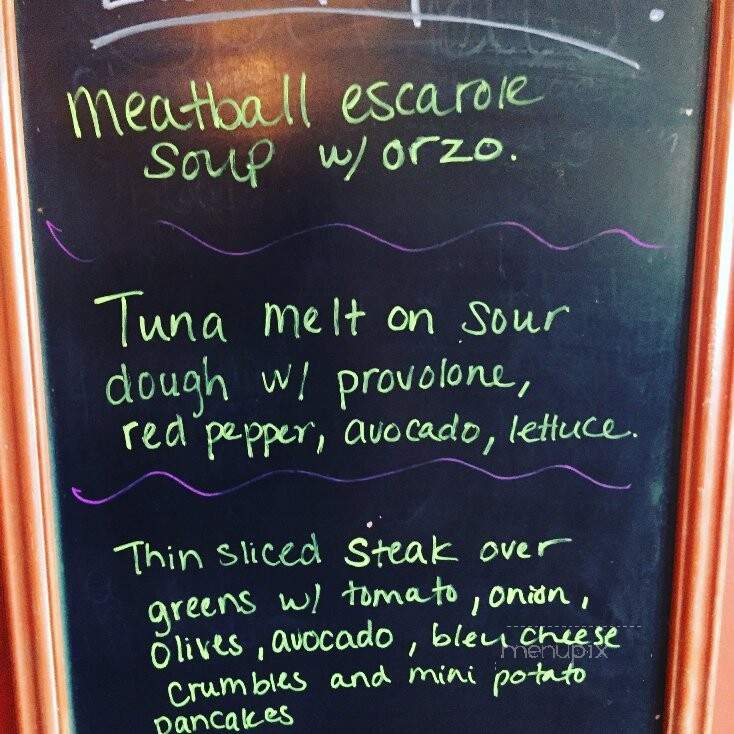 Meatball escarole
soup w/ orzo.
Tuna melt on sour
dough w/ provolone,
red pepper, avocado, lettuce.
Thin sliced steak over
greens w/ tomato, onion,
olives, avocado, bleu cheese
menupix
crumbles and mini potato
pancakes